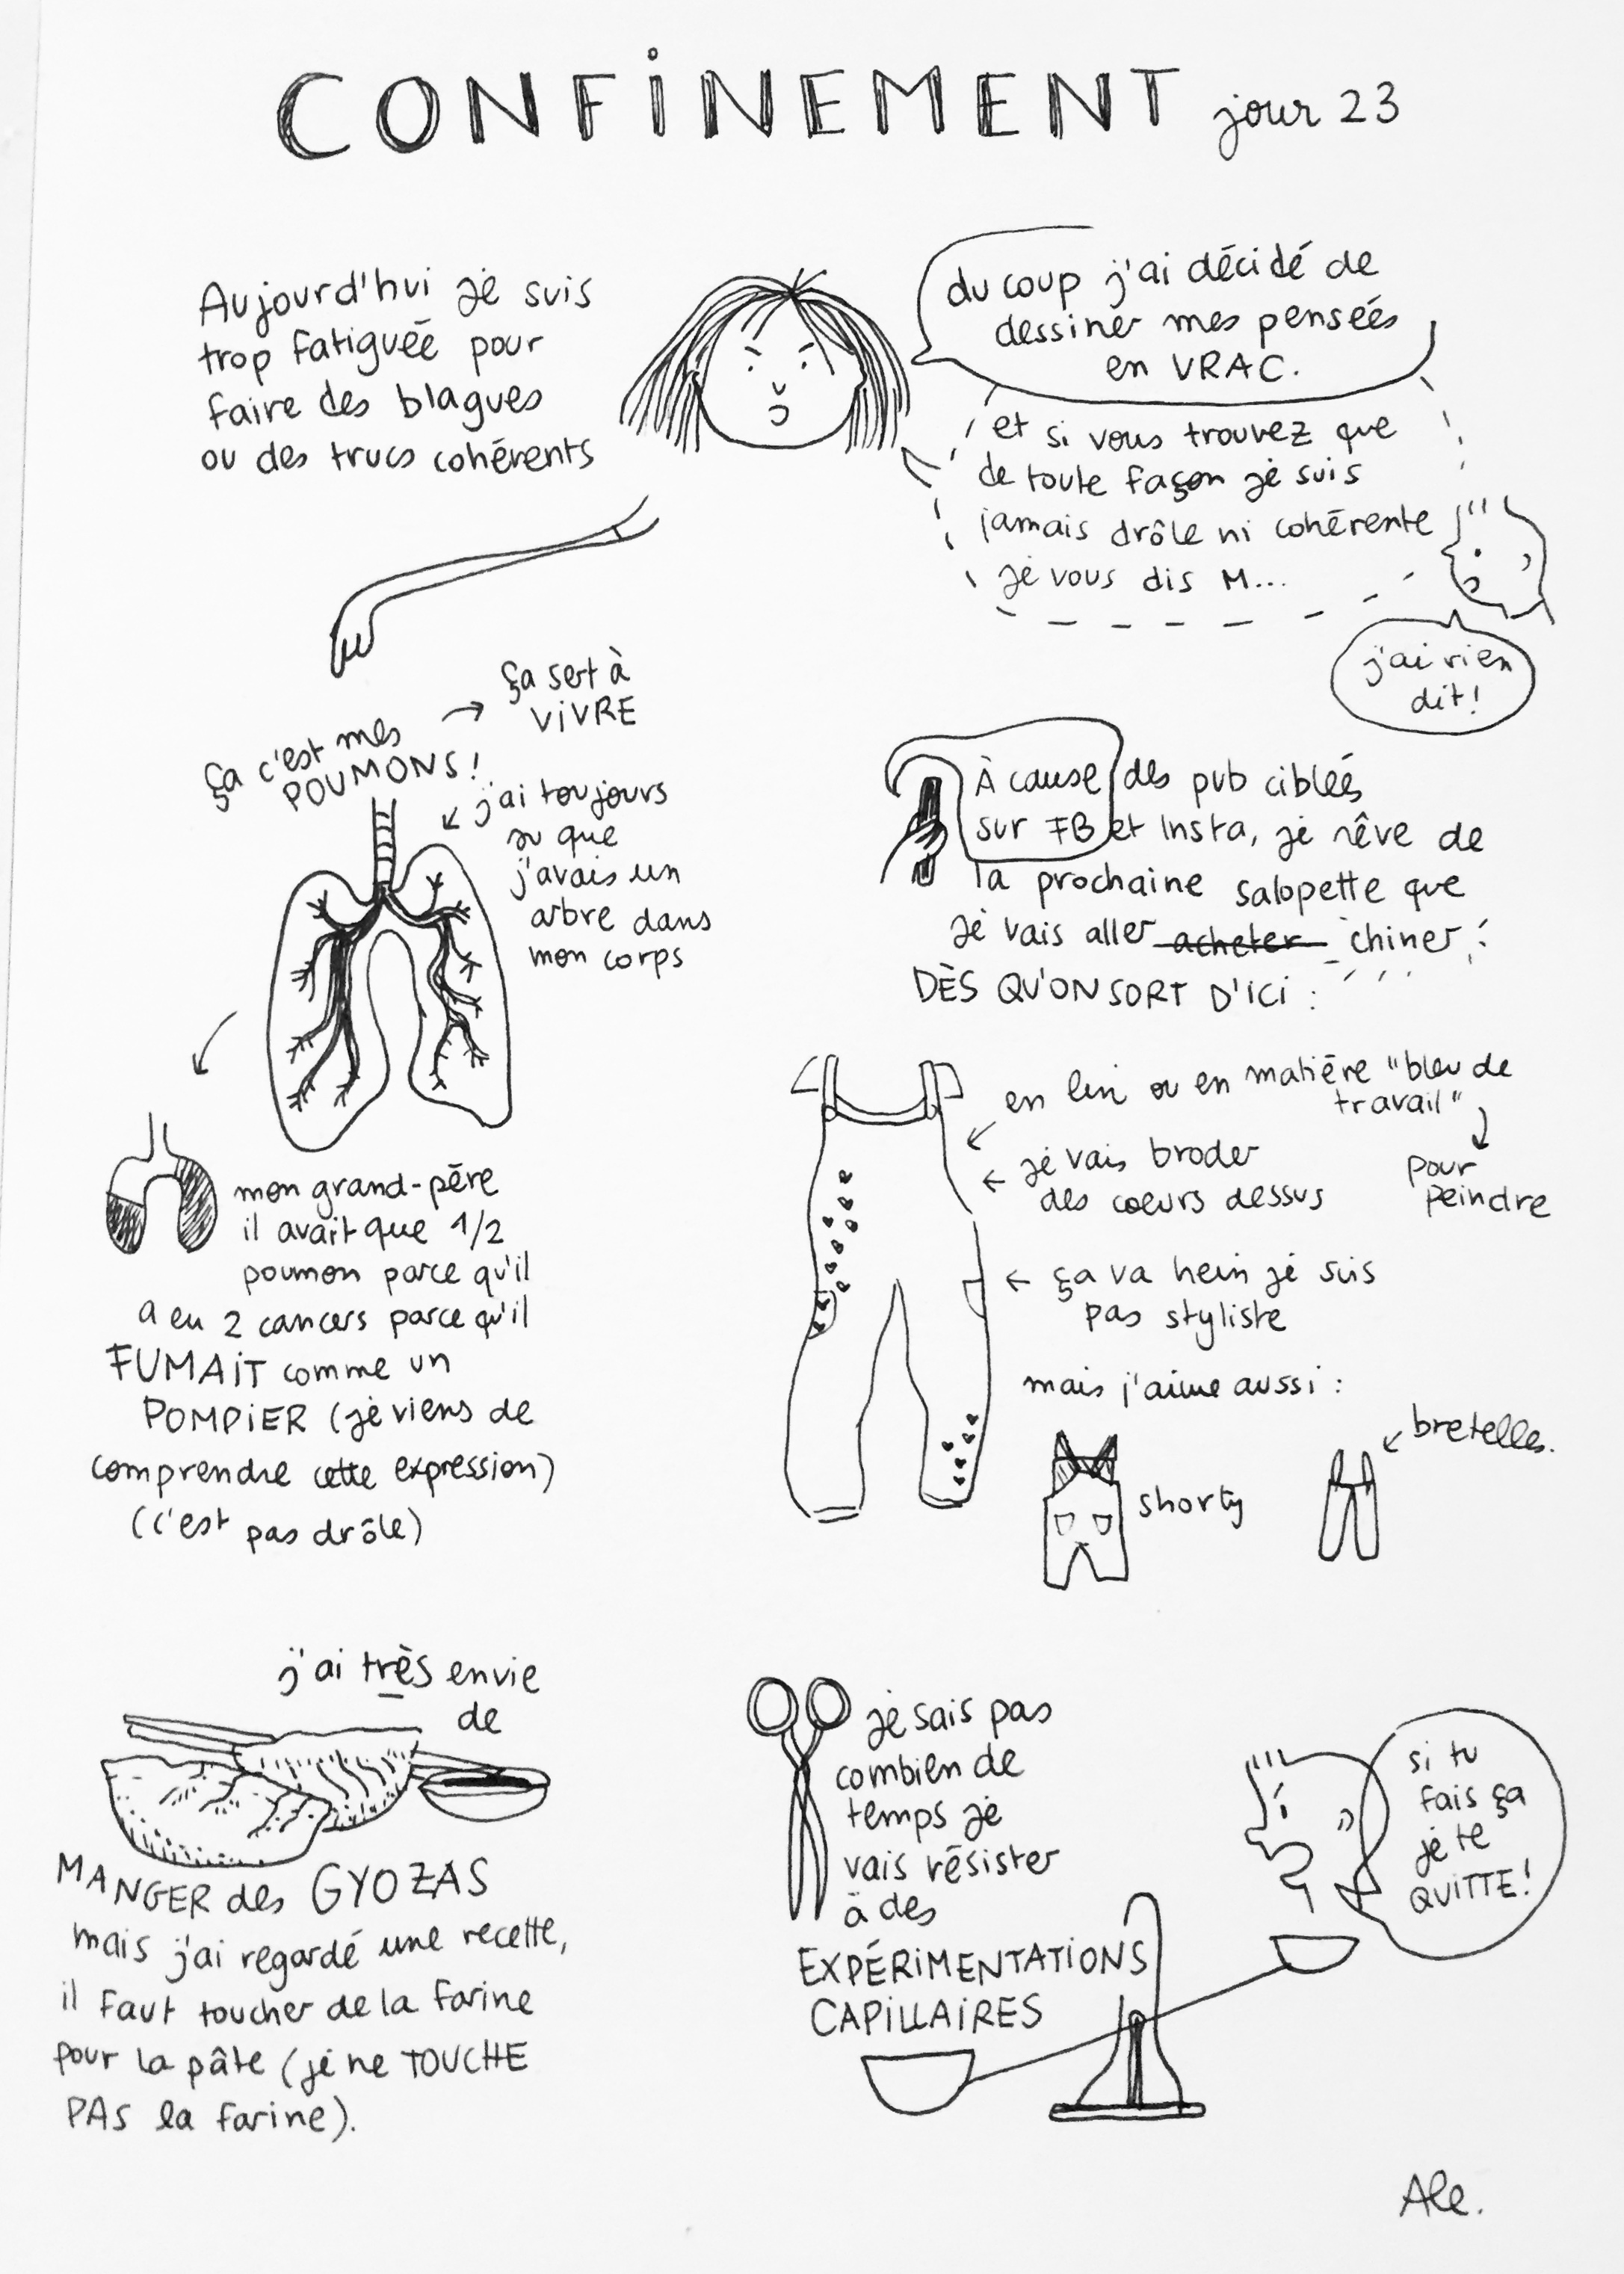 CONFINEMENT jour 23
Aujourd'hui je suis
trop fatiguée pour
faire des blagues
ou des trucs cohérents
du coup j'ai décidé de
dessiner mes pensées
en VRAC.
et si vous trouvez que
de toute façon je suis
jamais drôle ni cohérente
je vous dis M...
j'ai rien
dit!
ça c'est mes
POUMONS!
ça sert à
VIVRE
j'ai toujours
su que
j'avais un
arbre dans
mon corps
mon grand-père
il avait que 1/2
poumon parce qu'il
a eu 2 cancers parce qu'il
FUMAIT comme un
POMPIER (je viens de
comprendre cette expression)
(c'est pas drôle)
À cause des pub ciblées
sur FB et Insta, je rêve de
la prochaine salopette que
je vais aller acheter chiner
DÈS QU'ON SORT D'ICI :
en lin ou en matière "bleu de
travail"
pour
peindre
je vais broder
des coeurs dessus
ça va hein je suis
pas styliste
mais j'aime aussi :
shorty
bretelles.
j'ai très envie
de
MANGER des GYOZAS
mais j'ai regardé une recette,
il faut toucher de la farine
pour la pâte (je ne TOUCHE
PAS la farine).
je sais pas
combien de
temps je
vais résister
à des
EXPÉRIMENTATIONS
CAPILLAIRES
si tu
fais ça
je te
QUITTE!
Ale.